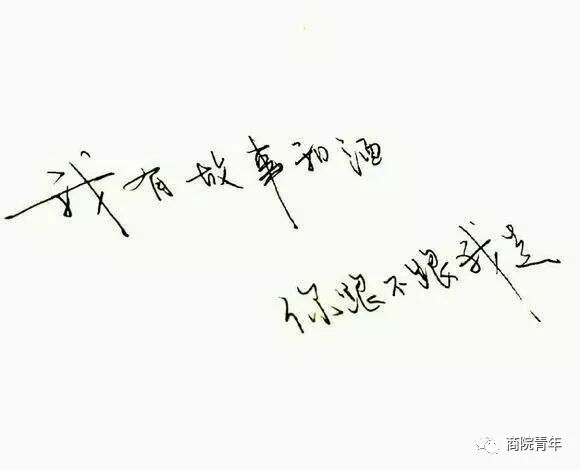 我有故事和酒
你跟不跟我走
商院青年